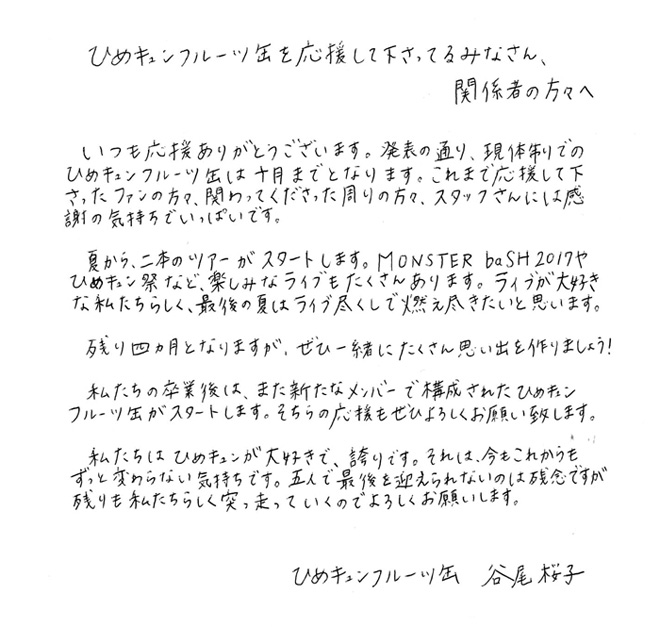 ひめキュンフルーツ缶を応援して下さってるみなさん、
関係者の方々へ
いつも応援ありがとうございます。発表の通り、現体制での
ひめキュンフルーツ缶は十月までとなります。これまで応援して下
さったファンの方々、関わってくださった周りの方々、スタッフさんには感
謝の気持ちでいっぱいです。
夏から、二本のツアーがスタートします。MONSTER baSH 2017や
ひめキュン祭など、楽しみなライブもたくさんあります。ライブが大好き
な私たちらしく、最後の夏はライブ尽くしで燃え尽きたいと思います。
残り四ヵ月となりますが、ぜひ一緒にたくさん思い出を作りましょう!
私たちの卒業後は、また新たなメンバーで構成されたひめキュン
フルーツ缶がスタートします。そちらの応援もぜひよろしくお願い致します。
私たちはひめキュンが大好きで、誇りです。それは、今もこれからも
ずっと変わらない気持ちです。五人で最後を迎えられないのは残念ですが
残りも私たちらしく突っ走っていくのでよろしくお願いします。
ひめキュンフルーツ缶 谷尾桜子